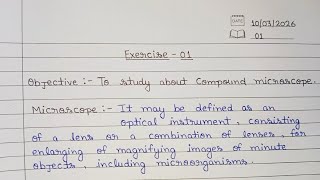 DATE 10/03/2026
01
Exercise - 01
Objective :- To study about Compound microscope.
Microscope :- It may be defined as an
optical instrument, consisting
of a lens or a combination of lenses, for
enlarging of magnifying images of minute
objects, including microorganisms.